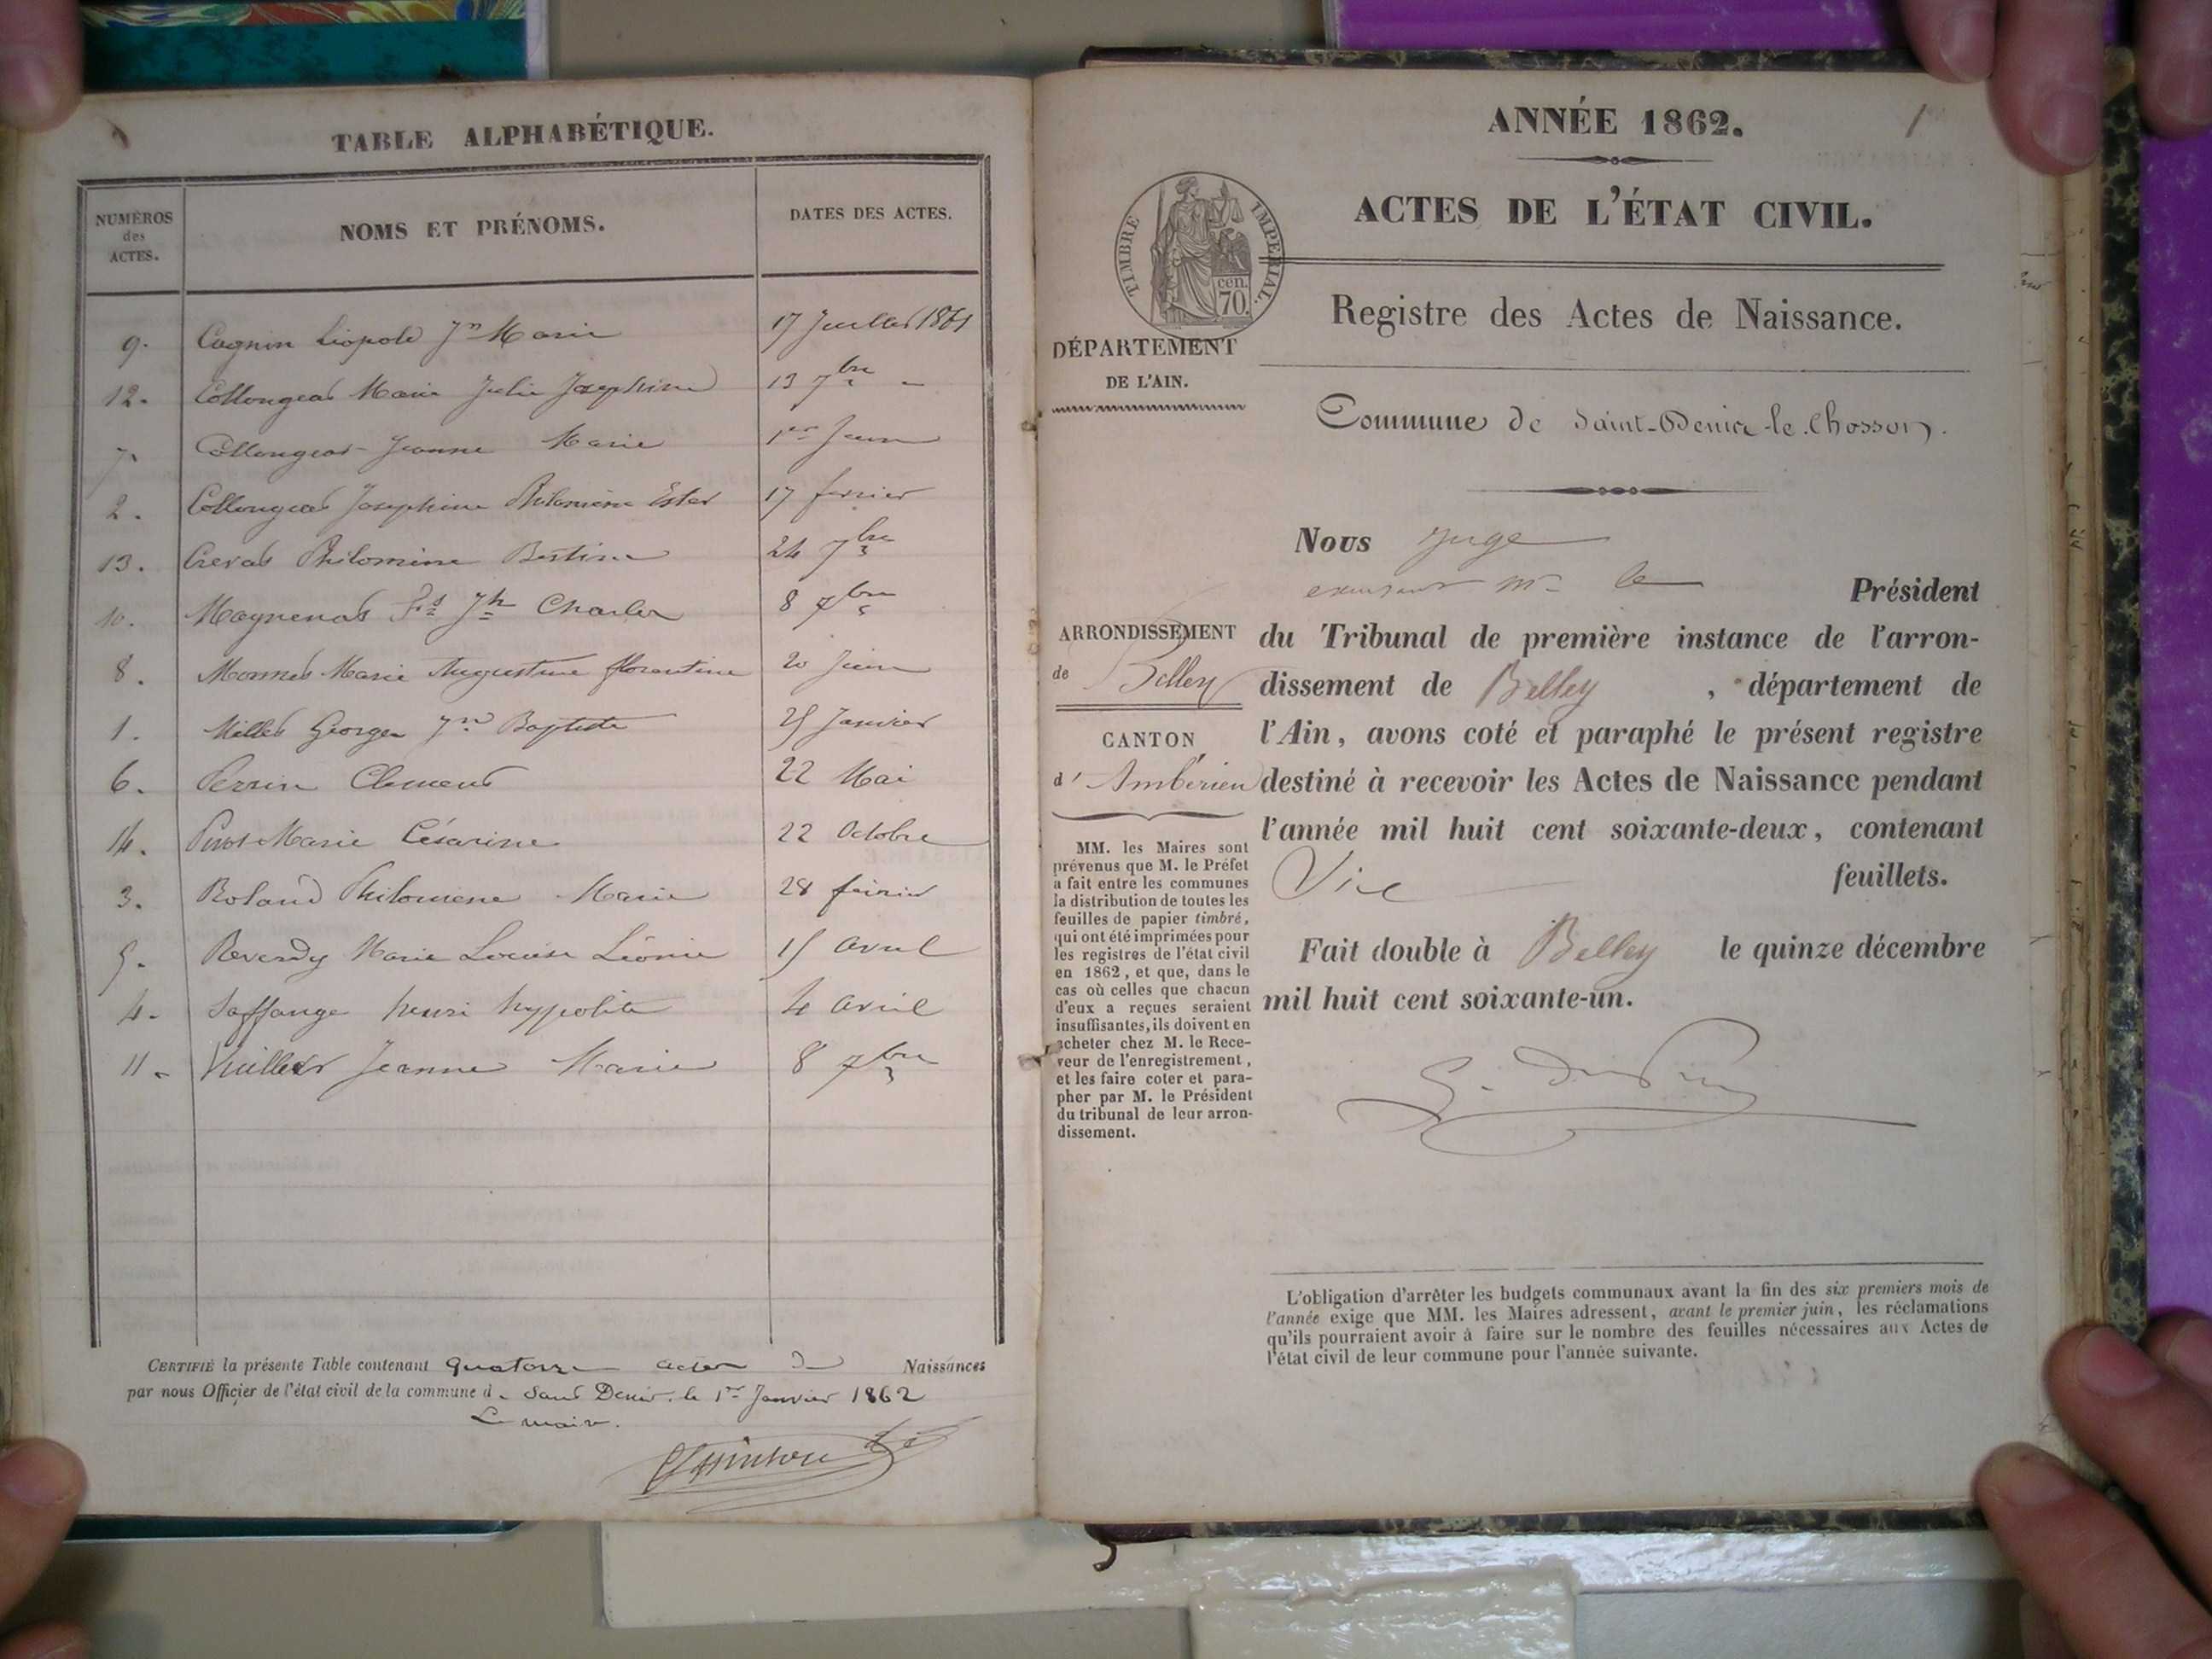 TABLE ALPHABÉTIQUE.
NUMÉROS
des
ACTES.
NOMS ET PRÉNOMS.
DATES DES ACTES.
9. Cagnin Léopold Jn Marie 17 Juillet 1861
12. Collongeat Marie Julie Josephine 13 7bre -
7. Collongeat Jeanne Marie 1er Juin
2. Collongeat Josephine Philomène Ester 17 fevrier
13. Crevat Philomine 24 7bre
10. Jh Charles 8 7bre
8. Marie Augustine florentine 20 Juin
1. Millet Georges Jn Baptiste 25 Janvier
6. Perrin Clement 22 Mai
14. Marie Césarine 22 Octobre
3. Roland Philomene Marie 28 février
5. Reverdy Marie Louise Léonie 15 avril
4. Saffange henri hypolite 4 avril
11. Jeanne Marie 8 7bre
CERTIFIÉ la présente Table contenant quatorze actes de Naissances
par nous Officier de l'état civil de la commune d. Saint Denis. le 1er Janvier 1862
Le maire.
ANNÉE 1862.
1
ACTES DE L'ÉTAT CIVIL.
TIMBRE IMPERIAL.
cen.
70.
Registre des Actes de Naissance.
DÉPARTEMENT
DE L'AIN.
Commune de Saint-Denis-le-Chosson.
Nous Juge
Mr le Président
ARRONDISSEMENT
de Belley
CANTON
d' Ambérieu
du Tribunal de première instance de l'arron-
dissement de Belley, département de
l'Ain, avons coté et paraphé le présent registre
destiné à recevoir les Actes de Naissance pendant
l'année mil huit cent soixante-deux, contenant
feuillets.
Fait double à Belley le quinze décembre
mil huit cent soixante-un.
MM. les Maires sont
prévenus que M. le Préfet
a fait entre les communes
la distribution de toutes les
feuilles de papier timbré,
qui ont été imprimées pour
les registres de l'état civil
en 1862, et que, dans le
cas où celles que chacun
d'eux a reçues seraient
insuffisantes, ils doivent en
acheter chez M. le Rece-
veur de l'enregistrement,
et les faire coter et para-
pher par M. le Président
du tribunal de leur arron-
dissement.
L'obligation d'arrêter les budgets communaux avant la fin des six premiers mois de
l'année exige que MM. les Maires adressent, avant le premier juin, les réclamations
qu'ils pourraient avoir à faire sur le nombre des feuilles nécessaires aux Actes de
l'état civil de leur commune pour l'année suivante.